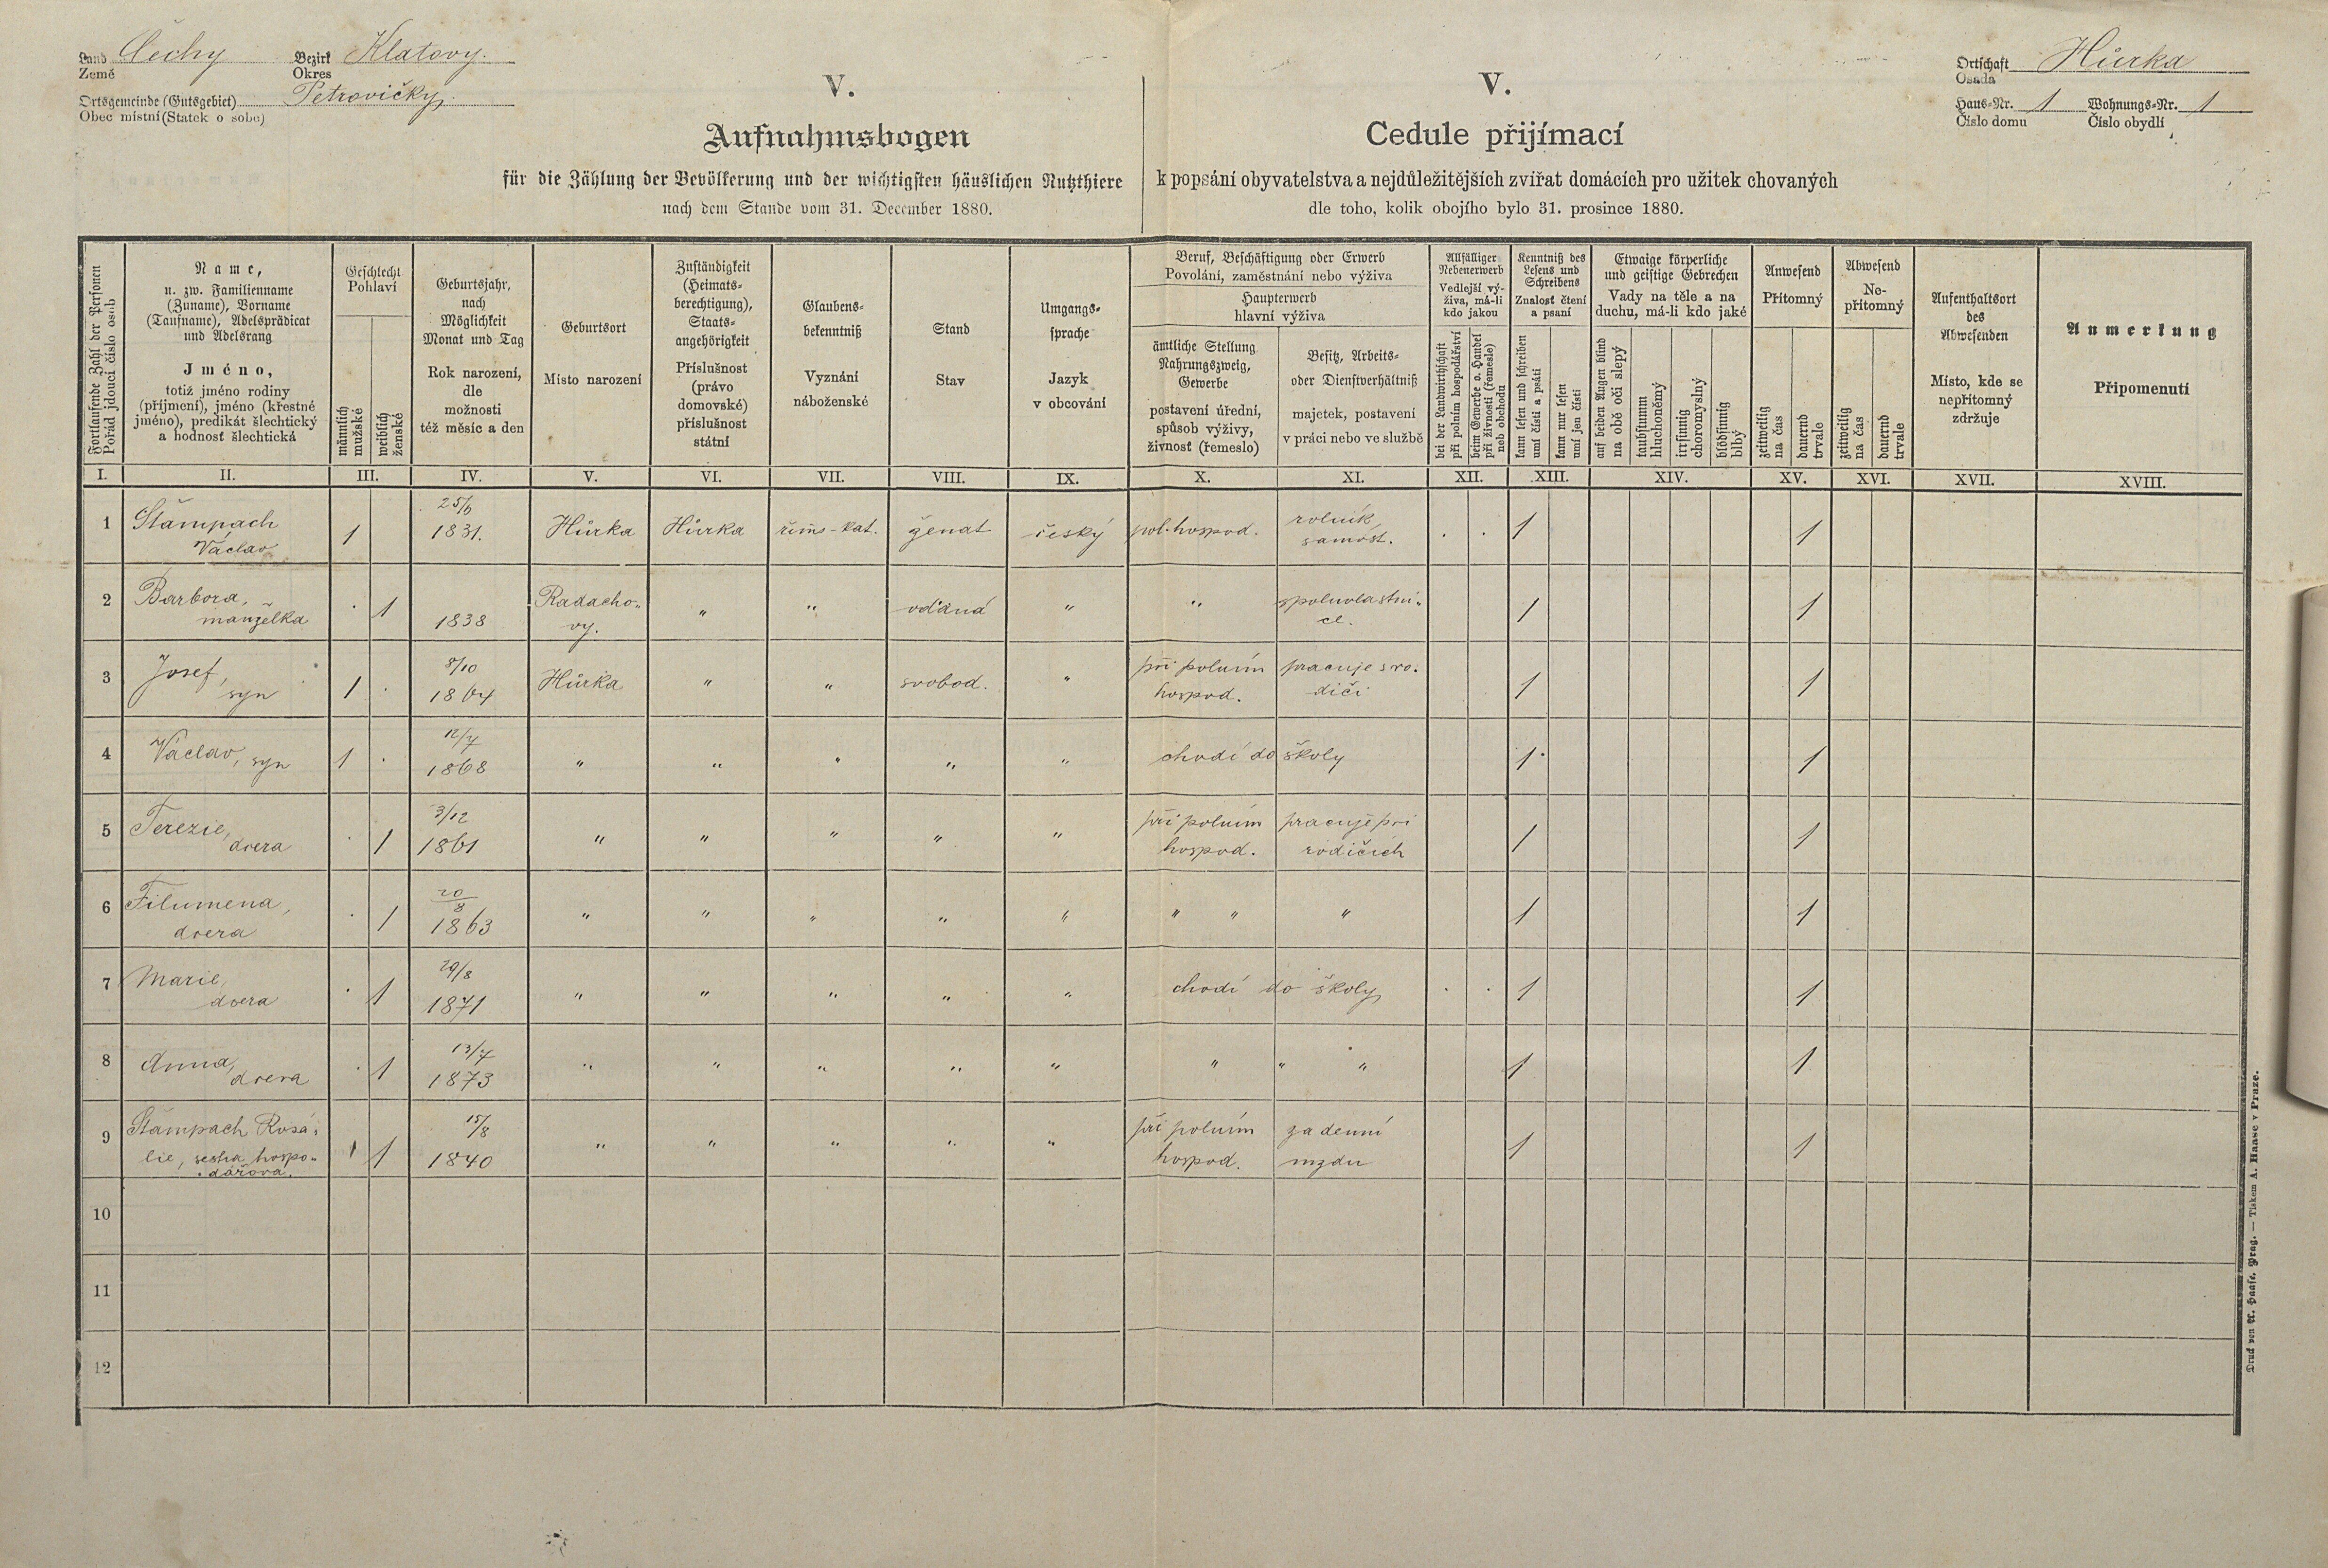 Land Čechy Bezirk Klatovy.
Země Okres
Ortsgemeinde (Gutsgebiet) Petrovičky
Obec místní (Statek o sobě)
Ortschaft Hůrka
Osada
Haus-Nr. 1 Wohnungs-Nr. 1
Číslo domu Číslo obydlí
V.
Aufnahmsbogen
für die Zählung der Bevölkerung und der wichtigsten häuslichen Nutzthiere
nach dem Stande vom 31. December 1880.
V.
Cedule přijímací
k popsání obyvatelstva a nejdůležitějších zvířat domácích pro užitek chovaných
dle toho, kolik obojího bylo 31. prosince 1880.
Fortlaufende Zahl der Personen
Pořád jdoucí číslo osob
Name,
u. zw. Familienname
(Zuname), Vorname
(Taufname), Adelsprädicat
und Adelsrang
Jméno,
totiž jméno rodiny
(příjmení), jméno (křestné
jméno), predikát šlechtický
a hodnosť šlechtická
Geschlecht
Pohlaví
männlich
mužské
weiblich
ženské
Geburtsjahr,
nach
Möglichkeit
Monat und Tag
Rok narození,
dle
možnosti
též měsíc a den
Geburtsort
Místo narození
Zuständigkeit
(Heimats-
berechtigung),
Staats-
angehörigkeit
Příslušnost
(právo
domovské)
příslušnost
státní
Glaubens-
bekenntniß
Vyznání
náboženské
Stand
Stav
Umgangs-
sprache
Jazyk
v obcování
Beruf, Beschäftigung oder Erwerb
Povolání, zaměstnání nebo výživa
Haupterwerb
hlavní výživa
ämtliche Stellung
Nahrungszweig,
Gewerbe
postavení úřední,
spůsob výživy,
živnosť (řemeslo)
Besitz, Arbeits-
oder Dienstverhältniß
majetek, postavení
v práci nebo ve službě
Allfälliger
Nebenerwerb
Vedlejší vý-
živa, má-li
kdo jakou
bei der Landwirthschaft
při polním hospodářství
beim Gewerbe o. Handel
při živnosti (řemesle)
neb obchodu
Kenntniß des
Lesens und
Schreibens
Znalosť čtení
a psaní
kann lesen und schreiben
umí čísti a psáti
kann nur lesen
umí jen čísti
Etwaige körperliche
und geistige Gebrechen
Vady na těle a na
duchu, má-li kdo jaké
auf beiden Augen blind
na obě oči slepý
taubstumm
hluchoněmý
irrsinnig
choromyslný
blödsinnig
blbý
Anwesend
Přítomný
zeitweilig
na čas
dauernd
trvale
Abwesend
Ne-
přítomný
zeitweilig
na čas
dauernd
trvale
Aufenthaltsort
des
Abwesenden
Místo, kde se
nepřítomný
zdržuje
Anmerkung
Připomenutí
I. II. III. IV. V. VI. VII. VIII. IX. X. XI. XII. XIII. XIV. XV. XVI. XVII. XVIII.
1 Štampach Václav 1 25/6 1831. Hůrka Hůrka řím-kat. ženat český pol. hospod. rolník, samost. 1 1
2 Barbora, manželka 1 1838 Radacho„ vy. „ „ vdaná „ „ spoluvlastni„ ce. 1 1
3 Josef, syn 1 8/10 1864 Hůrka „ „ svobod. „ při polním hospod. pracuje s ro. diči 1 1
4 Václav, syn 1 12/7 1868 „ „ „ „ „ chodí do školy 1 1
5 Terezie, dcera 1 3/12 1861 „ „ „ „ „ při polním hospod. pracuje při rodičích 1 1
6 Filumena, dcera 1 20/8 1863 „ „ „ „ „ „ „ „ 1 1
7 Marie, dcera 1 29/8 1871 „ „ „ „ „ chodí do školy 1 1
8 Anna, dcera 1 13/7 1873 „ „ „ „ „ „ „ „ 1 1
9 Štampach Rosá„ lie, sestra hospo„ dářova. 1 15/8 1840 „ „ „ „ „ při polním hospod. za denní mzdu 1 1
10
11
12
Druck von A. Haase, Prag. — Tiskem A. Haase v Praze.